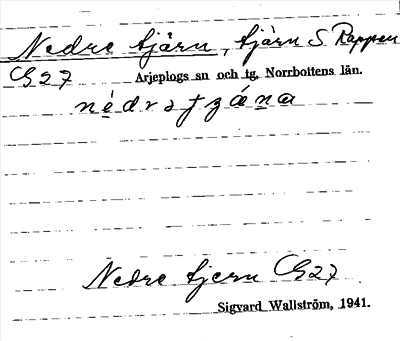 Nedre tjärn, tjärn S. Rappen
G27 Arjeplogs sn och tg, Norrbottens län.
Nedre tjern G27
Sigvard Wallström, 1941.